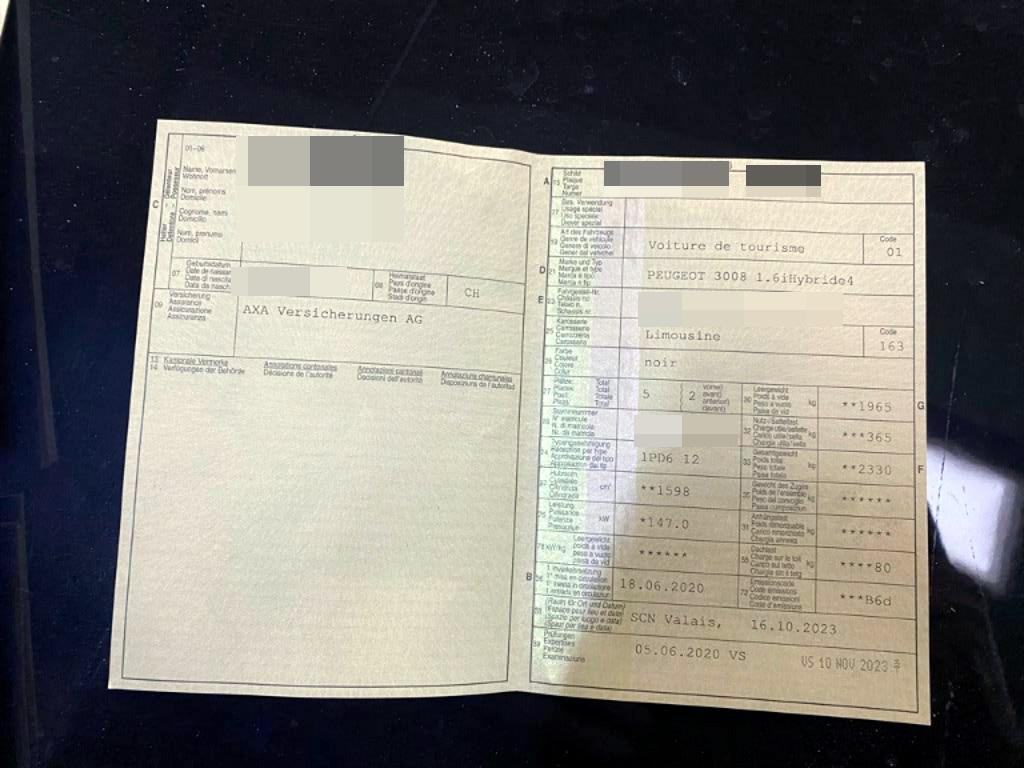 01-06
C
Name, Vornamen
Wohnort
Nom, prénoms
Domicile
Cognome, nomi
Domicilio
Nom, prenums
Domicil
07
Geburtsdatum
08
Heimatstaat
Pays d'origine
Paese d'origine
Stadi d'origin
CH
09
Versicherung
Assurance
Assicurazione
Assicuranza
AXA Versicherungen AG
13 Kantonale Vermerke
14 Verfügungen der Behörde
Annotations cantonales
Décisions de l'autorité
Annotazioni cantonali
Decisioni dell'autorità
Annotaziuns chantunalas
Disposiziuns da l'autoritad
A 15
Schild
Plaque
Targa
Numer
17
Bes. Verwendung
Usage spécial
Uso speciale
Diever spezial
19
Art des Fahrzeugs
Genre de véhicule
Genere di veicolo
Gener dal vehichel
Voiture de tourisme
Code
01
D 21
Marke und Typ
Marque et type
Marca e tipo
Marca e tip
PEUGEOT 3008 1.6iHybride4
E 23
Fahrgestell-Nr.
Châssis no
Telaio n.
Schassis nr.
25
Karosserie
Carrosserie
Carrozzeria
Carossaria
Limousine
Code
163
26
Farbe
Couleur
Colore
Colur
noir
27
Plätze: Total
Places: Total
Posti: Totale
Plazs: Total
5
2
vorne)
avant)
anteriori)
davant)
30
Leergewicht
Poids à vide
Peso a vuoto
Paisa da vid
kg
**1965
G
Stammnummer
N° matricule
N. di matricola
Nr. da matricla
32
Nutz-/Sattellast
Charge utile/sellette
Carico utile/sella
Chargia utila/sella
kg
***365
24
Typengenehmigung
Réception par type
Approvazione del tipo
Approvaziun dal tip
1PD6 12
33
Gesamtgewicht
Poids total
Peso totale
Paisa totala
kg
**2330
F
37
Hubraum
Cylindrée
Cilindrata
Cilindrada
cm³
**1598
35
Gewicht des Zuges
Poids de l'ensemble
Peso del convoglio
Paisa cumposiziun
kg
******
76
Leistung
Puissance
Potenza
Prestaziun
kW
*147.0
31
Anhängelast
Poids remorquable
Carico rimorchiato
Chargia annexa
kg
******
78 kW/kg
Leergewicht
poids à vide
peso a vuoto
paisa da vid
******
55
Dachlast
Charge sur le toit
Carico sul tetto
Chargia sin il tetg
kg
****80
B 36
1. Inverkehrsetzung
1re mise en circulation
1a messa in circolazione
1. entrada en circulaziun
18.06.2020
72
Emissionscode
Code émissions
Codice emissioni
Code d'emissiuns
***B6d
38
(Raum für Ort und Datum)
(Espace pour lieu et date)
(Spazio per luogo e data)
(Spazi per lieu e data)
SCN Valais, 16.10.2023
39
Prüfungen
Expertises
Perizie
Examinaziuns
05.06.2020 VS
VS 10 NOV 2023